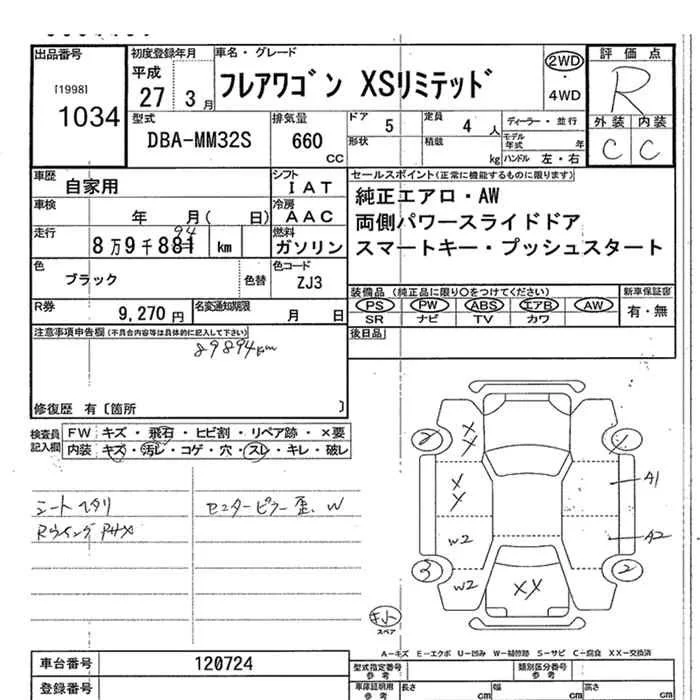 出品番号 初度登録年月 車名・グレード 評価点
[1998] 平成 フレアワゴン XSリミテッド 2WD R
1034 27 3月 ・ 4WD
外装 内装
型式 排気量 ドア 5 定員 4人 ディーラー・並行 C C
DBA-MM32S 660 CC 形状 積載 kg モデル年式 年
ハンドル 左・右
車歴 自家用 シフト IAT セールスポイント(正常に機能するものに限ります)
車検 年 月( 日) 冷房 AAC 純正エアロ・AW
両側パワースライドドア
走行 8万9千881 km 燃料 ガソリン スマートキー・プッシュスタート
94
色 ブラック 色替 色コード ZJ3
装備品 (純正品に限り○をつけてください) 新車保証書
PS PW ABS エアB AW 有・無
SR ナビ TV カワ
R券 9,270円 名変通知期限 月 日
注意事項申告欄(不具合内容等は具体的に記入して下さい) 後日品
89894km
修復歴 有〔箇所 〕
検査員記入欄 FW キズ・飛石・ヒビ割・リペア跡・×要
内装 キズ・汚レ・コゲ・穴・スレ・キレ・破レ
シートヘタリ センターピラー歪、W
2 X X X X W2 W2 3 XX A1 A2 2
スペア
A-キズ E-エクボ U-凹み W-補修跡 S-サビ C-腐食 XX-交換済
車台番号 120724 型式指定番号 参考 類別区分番号 参考
登録番号 車庫証明用 参考 長さ cm 幅 cm 高さ cm